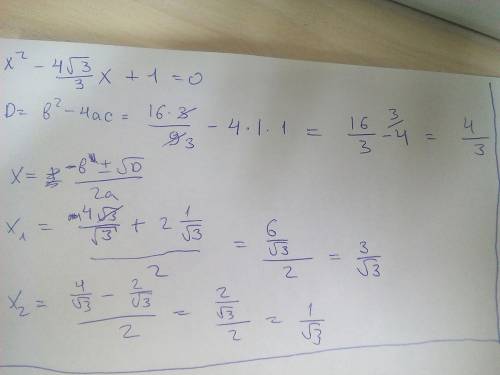 x² - 4√3/3 x + 1 = 0
D = b² - 4ac = 16·3/9 3 - 4·1·1 = 16/3 - 4 3 = 4/3
x = -b ± √D / 2a
x₁ = (4√3/√3 + 2 1/√3) / 2 = (6/√3) / 2 = 3/√3
x₂ = (4/√3 - 2/√3) / 2 = (2/√3) / 2 = 1/√3